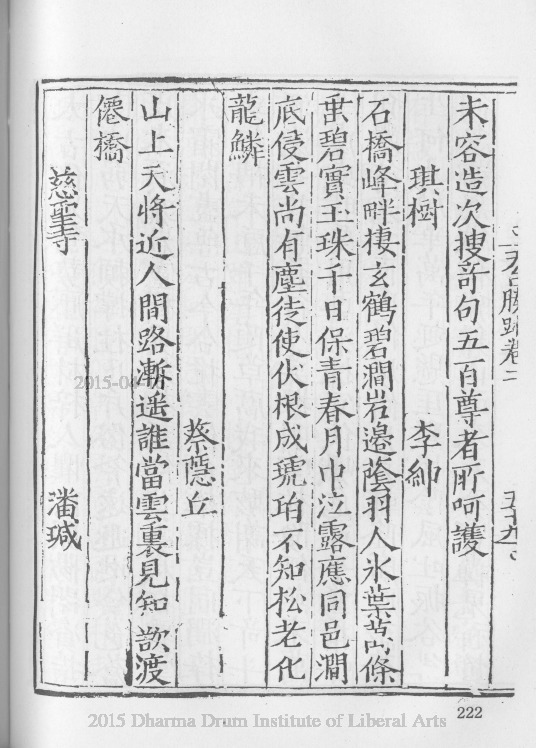 勝蹟卷二 五十九
未容造次搜奇句五百尊者所呵護
琪樹 李紳
石橋峰畔棲玄鶴碧澗岩邊蔭羽人氷葉萬條
垂碧實玉珠千日保青春月中泣露應同邑澗
底侵雲尚有塵徒使伏根成琥珀不知松老化
龍鱗
蔡隱丘
山上天將近人間路漸遙誰當雲裏見知欲渡
僊橋
慈聖寺 潘瑊
2015-04
222
2015 Dharma Drum Institute of Liberal Arts